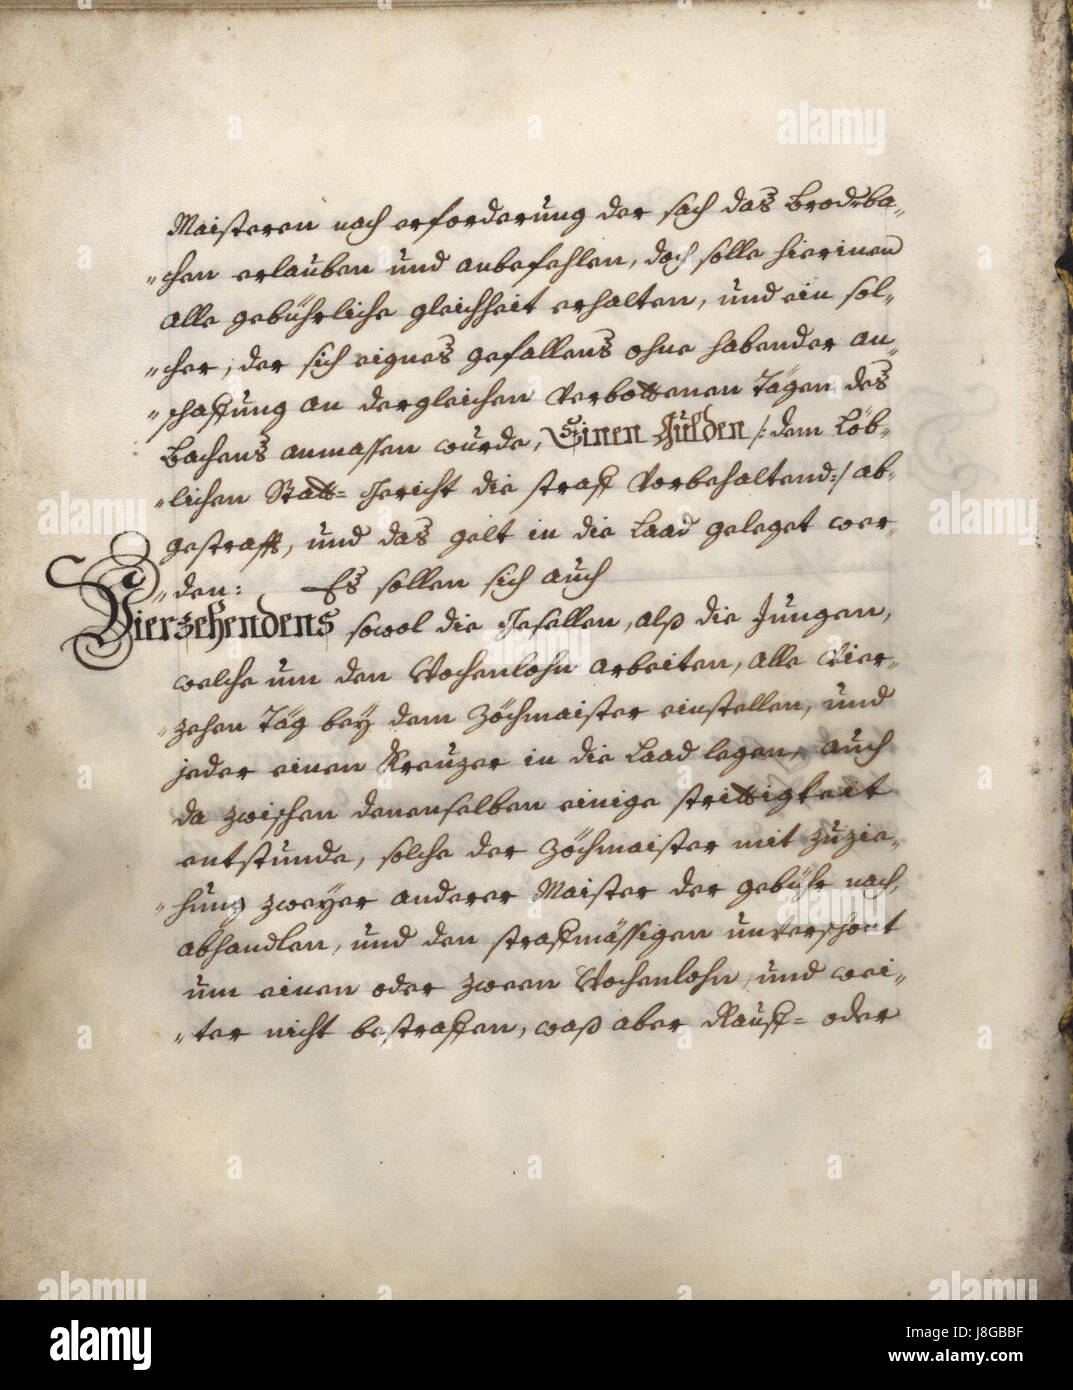 Maisteren nach erforderung der sach das Brod-ba„
„chen erlauben und anbefehlen, doch solle hierinen
alle gebührliche gleichheit erhalten, und ein sol„
„cher, der sich eignes gefallens ohne habender an„
„schaffung an dergleichen verbottenen Tägen des
Bachens anmassen wurde, Einen Gulden /: dem Löb„
„lichen Statt= Gericht die straff vorbehaltend :/ ab„
gestrafft, und das gelt in die Laad geleget wer„
„den: Es sollen sich auch
Vierzehendens sowol die Gesellen, alß die Jungen,
welche um den Wochenlohn arbeiten, alle Vier„
„zehen Täg bey dem Zöchmaister einstellen, und
jeder einen Kreuzer in die Laad legen, auch
da zwischen denenselben einige strittigkeit
entstunde, solche der Zöchmaister mit zuzie„
„hung zweyer anderer Maister der gebühr nach,
abhandlen, und den straffmässigen unverschont
um einen oder zween Wochenlohn, und wei„
„ter nicht bestraffen, waß aber Rauff= oder
alamy
Image ID: J8GBBF
www.alamy.com